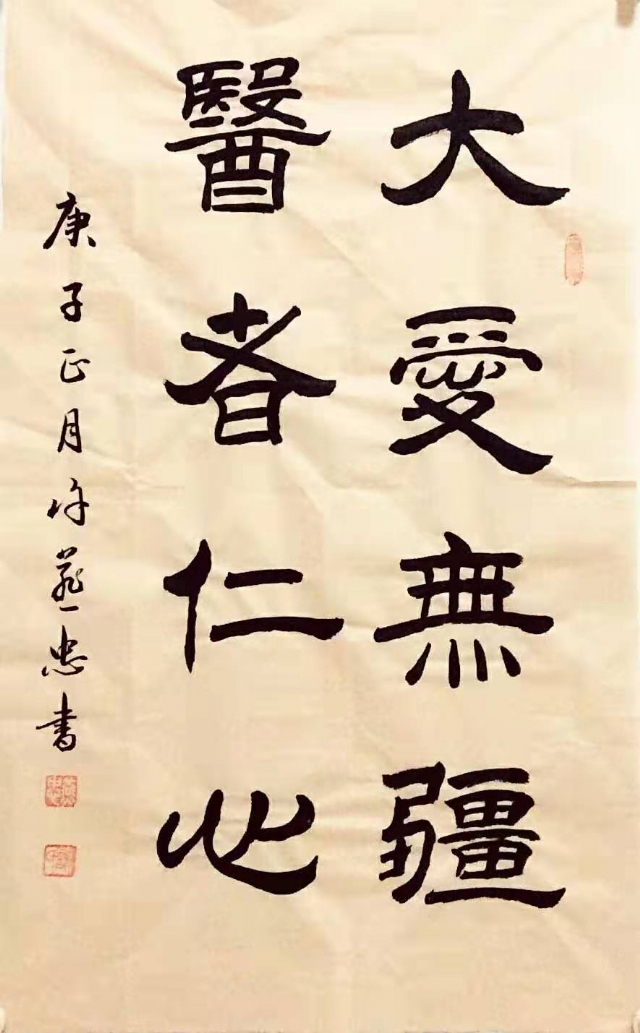 大愛無疆
醫者仁心
庚子正月许忠書